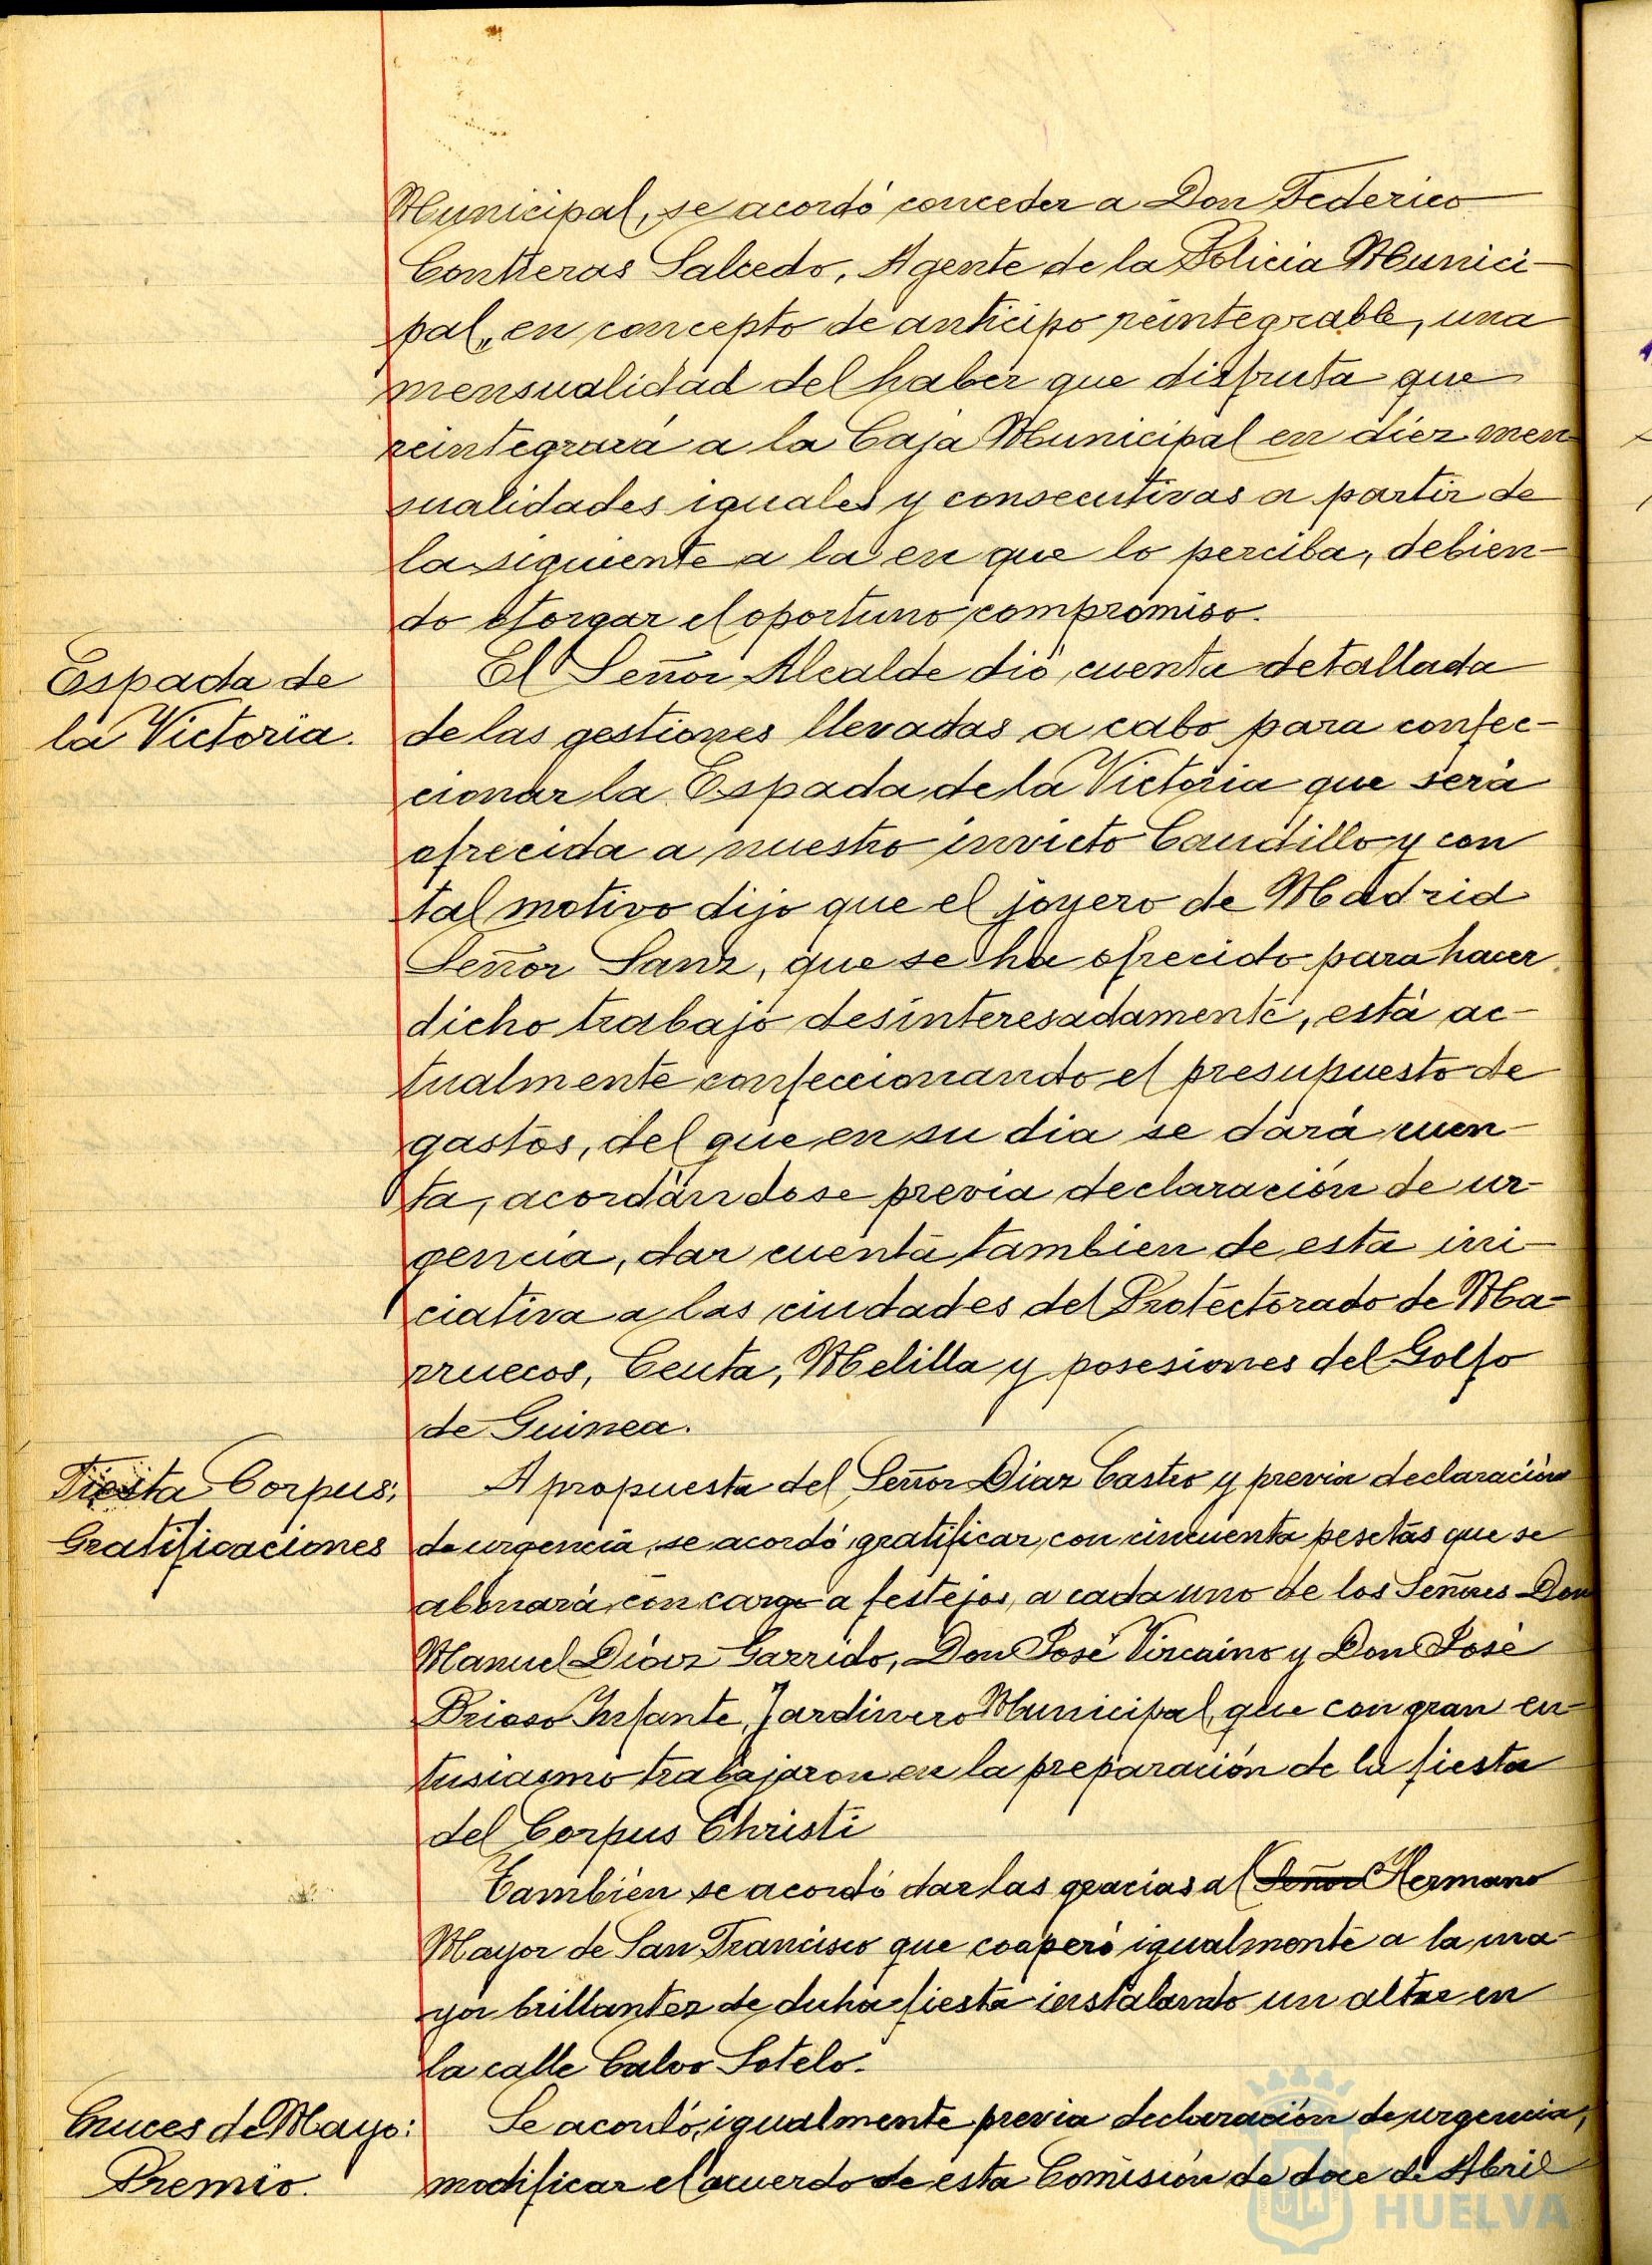 Municipal, se acordó conceder a Don Federico
Contreras Salcedo, Agente de la Policia Munici-
pal, en concepto de anticipo reintegrable, una
mensualidad del haber que disfruta que
reintegrará a la Caja Municipal en diez men-
sualidades iguales y consecutivas a partir de
la siguiente a la en que lo perciba, debien-
do otorgar el oportuno compromiso.
Espada de
la Victoria.
El Señor Alcalde dió cuenta detallada
de las gestiones llevadas a cabo para confec-
cionar la Espada de la Victoria que será
ofrecida a nuestro invicto Caudillo y con
tal motivo dijo que el joyero de Madrid
Señor Sanz, que se ha ofrecido para hacer
dicho trabajo desinteresadamente, está ac-
tualmente confeccionando el presupuesto de
gastos, del que en su dia se dará cuen-
ta, acordándose previa declaración de ur-
gencia, dar cuenta tambien de esta ini-
ciativa a las ciudades del Protectorado de Ma-
rruecos, Ceuta, Melilla y posesiones del Golfo
de Guinea.
Fiesta Corpus;
Gratificaciones
A propuesta del Señor Diaz Castro y previa declaración
de urgencia, se acordó gratificar, con cincuenta pesetas que se
abonará con cargo a festejos, a cada uno de los Señores Don
Manuel Diaz Garrido, Don José Vizcaino y Don José
Prioso Infante, Jardinero Municipal, que con gran en-
tusiasmo trabajaron en la preparación de la fiesta
del Corpus Christi
Tambien se acordó dar las gracias al Señor Hermano
Mayor de San Francisco que cooperó igualmente a la ma-
yor brillantez de dicha fiesta instalando un altar en
la calle Calvo Sotelo.
Cruces de Mayo:
Premio.
Se acordó, igualmente previa declaración de urgencia,
modificar el acuerdo de esta Comisión de doce de Abril
HUELVA